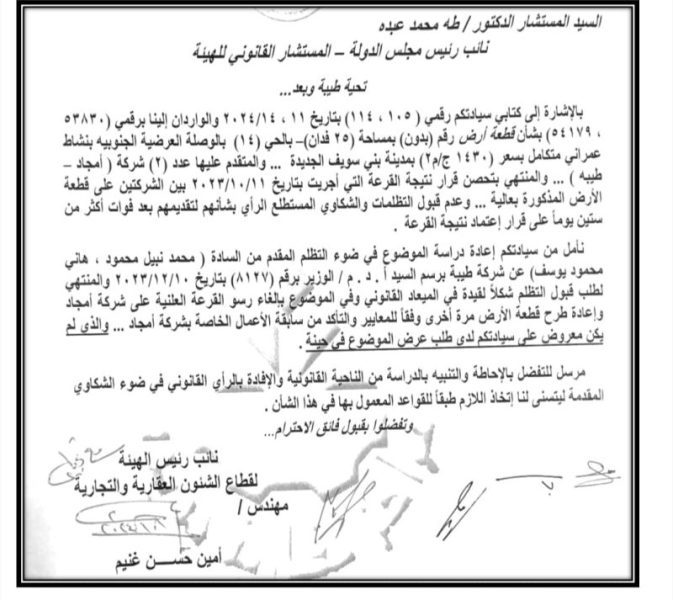 السيد المستشار الدكتور / طه محمد عبده
نائب رئيس مجلس الدولة – المستشار القانوني للهيئة
تحية طيبة وبعد...
بالإشارة إلى كتابي سيادتكم رقمي ( ١٠٥ ، ١١٤) بتاريخ ١١ ، ٢٠٢٤/١/١٤ والواردان إلينا برقمي (٥٣٨٣٠
، ٥٤١٧٩) بشأن قطعة أرض رقم (بدون) بمساحة (٢٥ فدان)– بالحي (١٤) بالوصلة العرضية الجنوبيه بنشاط
عمراني متكامل بسعر (١٤٣٠ ج/م٢) بمدينة بني سويف الجديدة ... والمتقدم عليها عدد (٢) شركة ( أمجاد –
طيبه ) ... والمنتهي بتحصن قرار نتيجة القرعة التي أجريت بتاريخ ٢٠٢٣/١٠/١١ بين الشركتين على قطعة
الأرض المذكورة بعالية ... وعدم قبول التظلمات والشكاوي المستطلع الرأي بشأنهم لتقديمهم بعد فوات أكثر من
ستين يوماً على قرار إعتماد نتيجة القرعة .
نأمل من سيادتكم إعادة دراسة الموضوع في ضوء التظلم المقدم من السادة ( محمد نبيل محمود ، هاني
محمود يوسف) عن شركة طيبة برسم السيد أ . د . م / الوزير برقم (٨١٢٧) بتاريخ ٢٠٢٣/١٢/١٠ والمنتهي
لطلب قبول التظلم شكلاً لقيدة في الميعاد القانوني وفي الموضوع بإلغاء رسو القرعة العلنية على شركة أمجاد
وإعادة طرح قطعة الأرض مرة أخرى وفقاً للمعايير والتأكد من سابقة الأعمال الخاصة بشركة أمجاد ... والذي لم
يكن معروض على سيادتكم لدى طلب عرض الموضوع في حينة .
مرسل للتفضل بالإحاطة والتنبيه بالدراسة من الناحية القانونية والإفادة بالرأي القانوني في ضوء الشكاوي
المقدمة ليتسنى لنا إتخاذ اللازم طبقاً للقواعد المعمول بها في هذا الشأن .
وتفضلوا بقبول فائق الاحترام...
نائب رئيس الهيئة
لقطاع الشئون العقارية والتجارية
مهندس /
أمين حسن غنيم